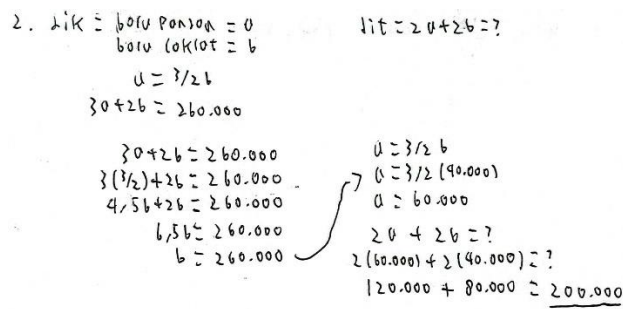 2. dik = boru Pandan = a
boru Coklat = b
dit = 2a+2b = ?
a = 3/2 b
3a+2b = 260.000
3a+2b = 260.000
3(3/2)+2b = 260.000
4,5b+2b = 260.000
6,5b = 260.000
b = 260.000
a = 3/2 b
a = 3/2 (40.000)
a = 60.000
2a + 2b = ?
2(60.000) + 2(40.000) = ?
120.000 + 80.000 = 200.000